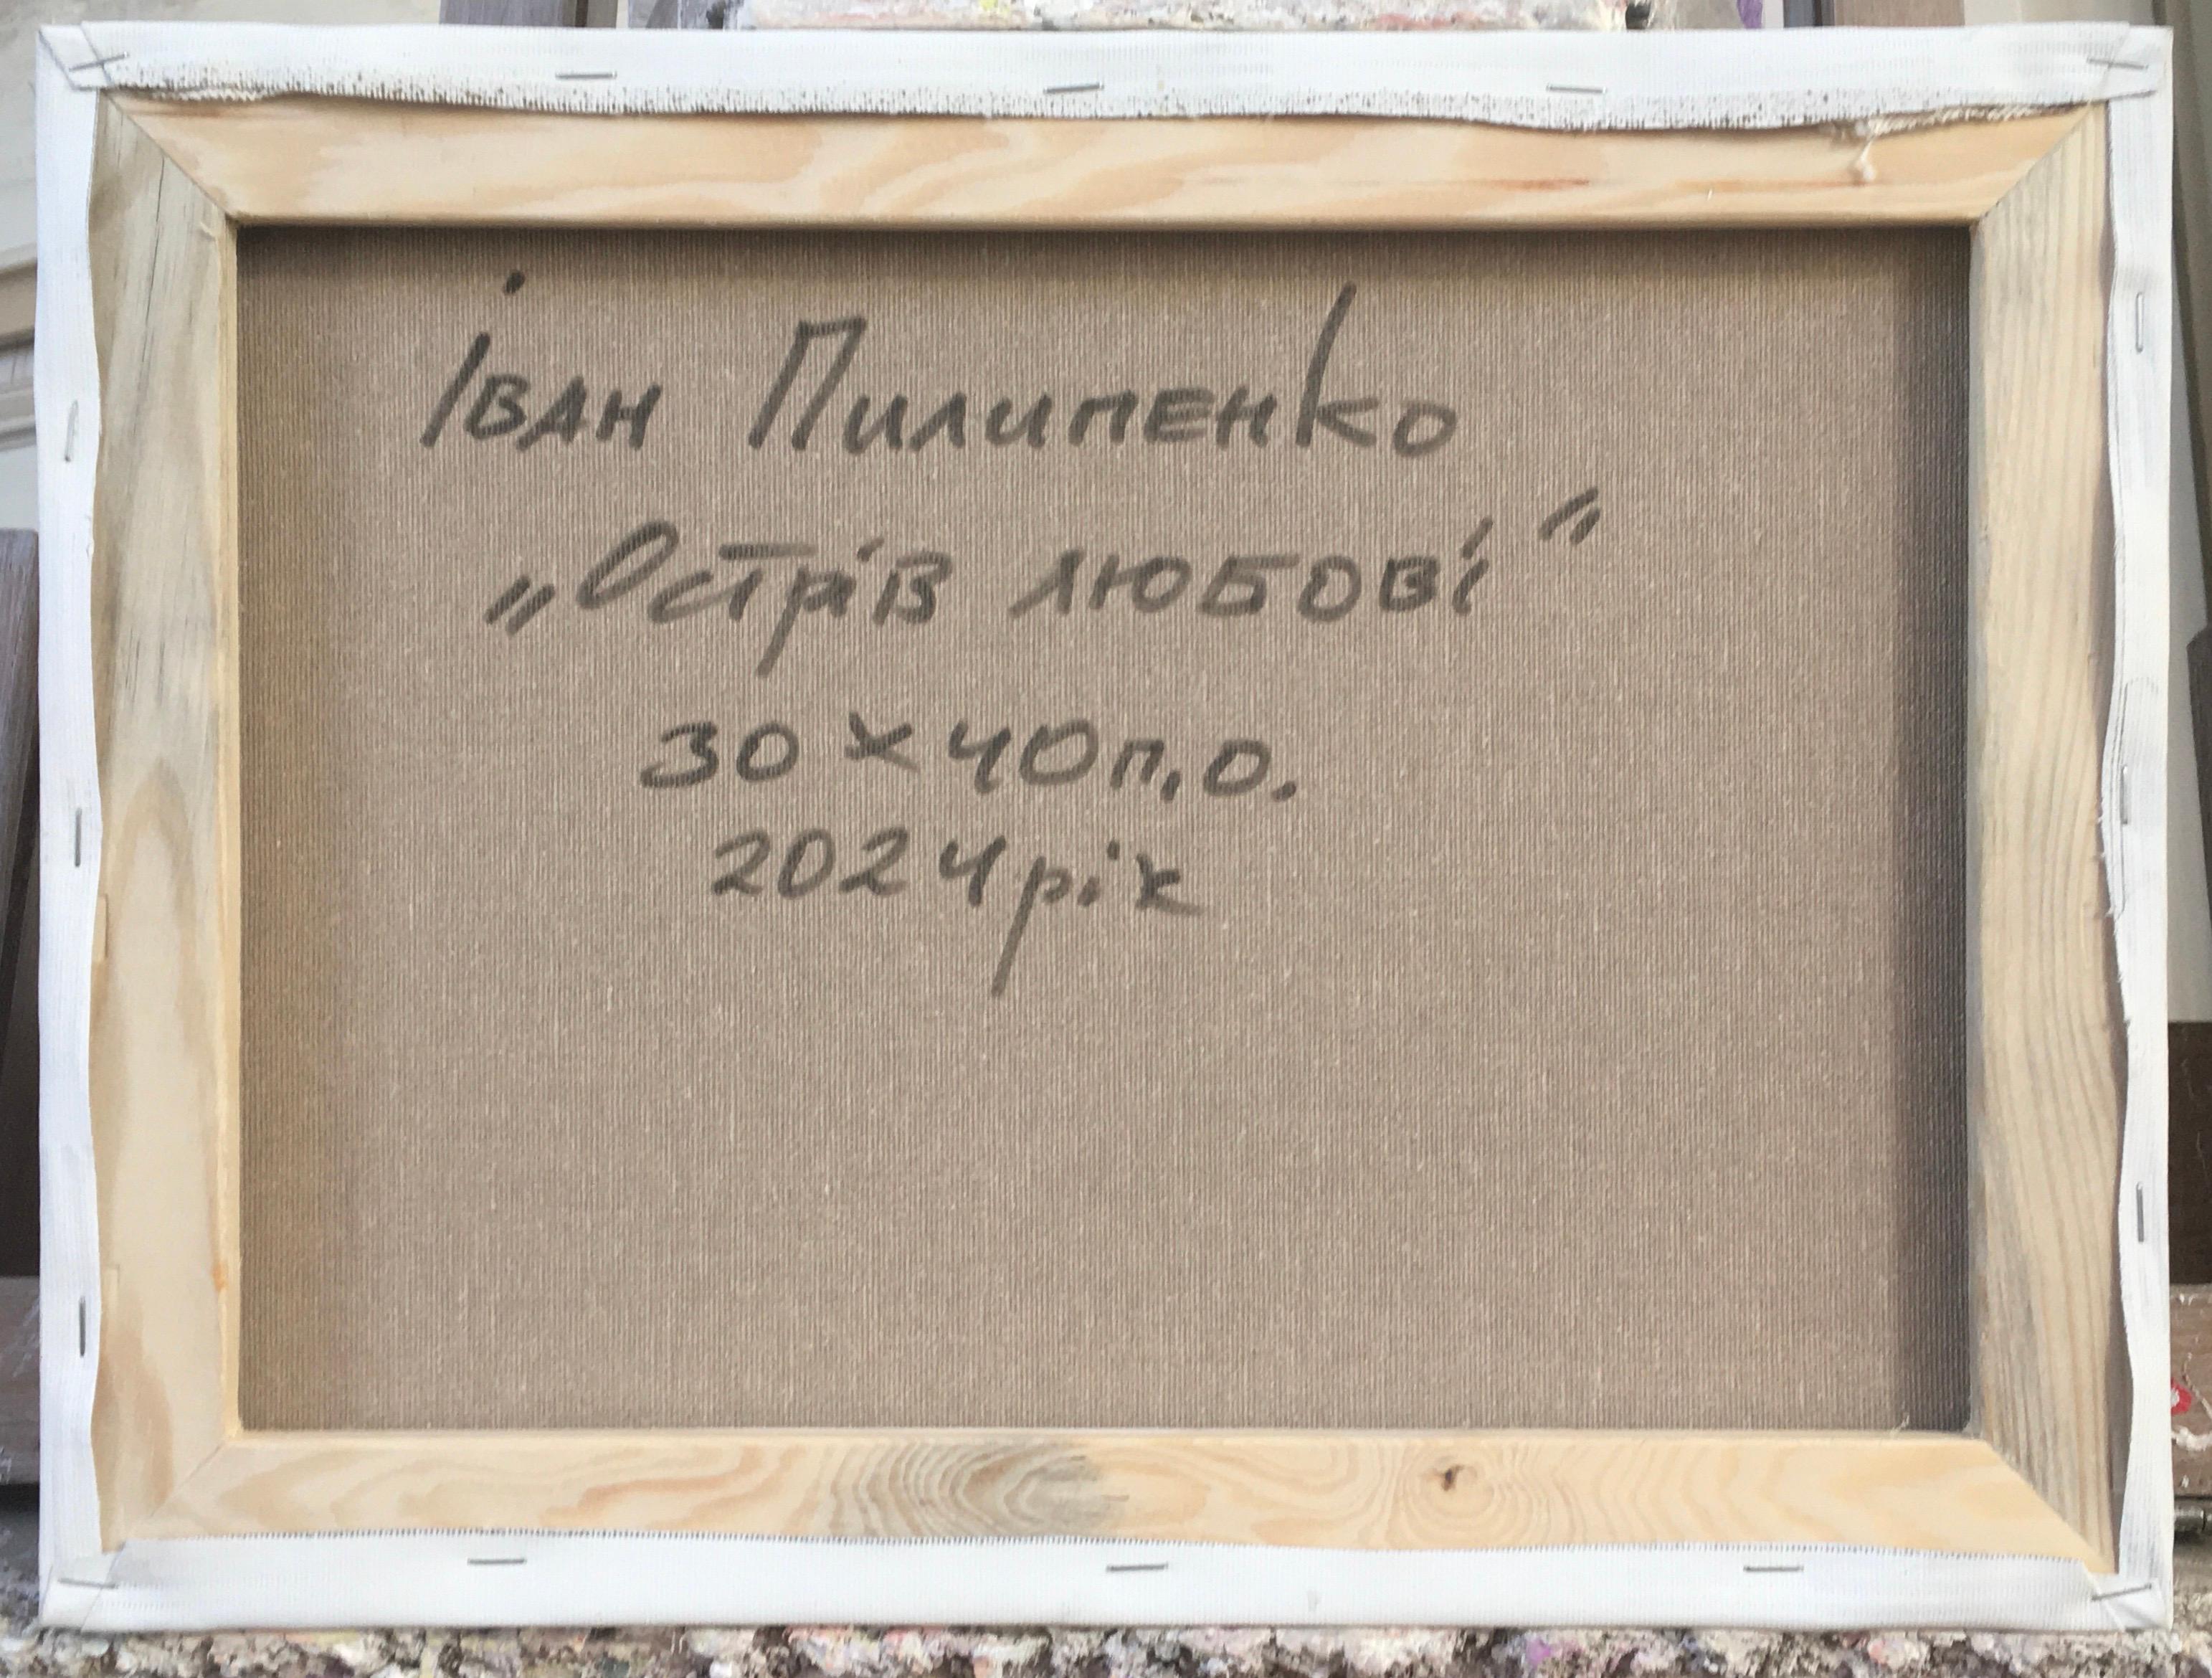 Іван Пилипенко
„Острів любові"
30х40п.о.
2024рік